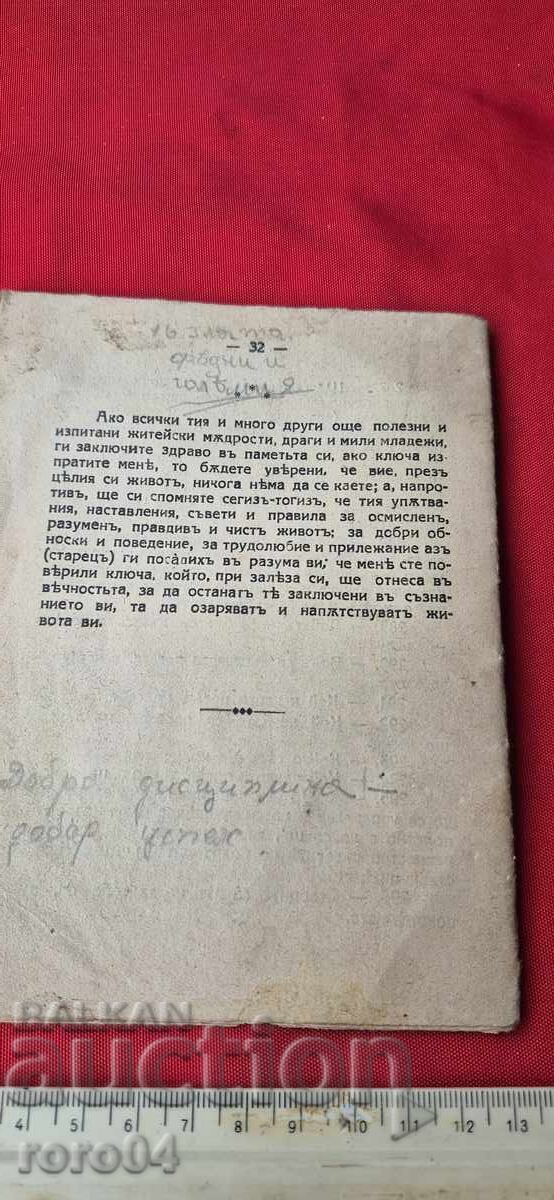 — 32 —
* * *
Ако всички тия и много други още полезни и
изпитани житейски мѫдрости, драги и мили младежи,
ги заключите здраво въ паметьта си, ако ключа из-
пратите менѣ, то бѫдете уверени, че вие, презъ
цѣлия си животъ, никога нѣма да се каете; а, напро-
тивъ, ще си спомняте сегизъ-тогизъ, че тия упѫтва-
ния, наставления, съвети и правила за осмисленъ,
разуменъ, правдивъ и чистъ животъ; за добри об-
носки и поведение, за трудолюбие и прилежание азъ
(старецъ) ги посадихъ въ разума ви, че менѣ сте по-
верили ключа, който, при залѣза си, ще отнеса въ
вѣчностьта, за да останатъ тѣ заключени въ съзна-
нието ви, та да озаряватъ и напѫтствуватъ жи-
вота ви.
Добра дисциплина —
добар успех
BALKAN
auction
roro04
4 5 6 7 8 9 10 11 12 13